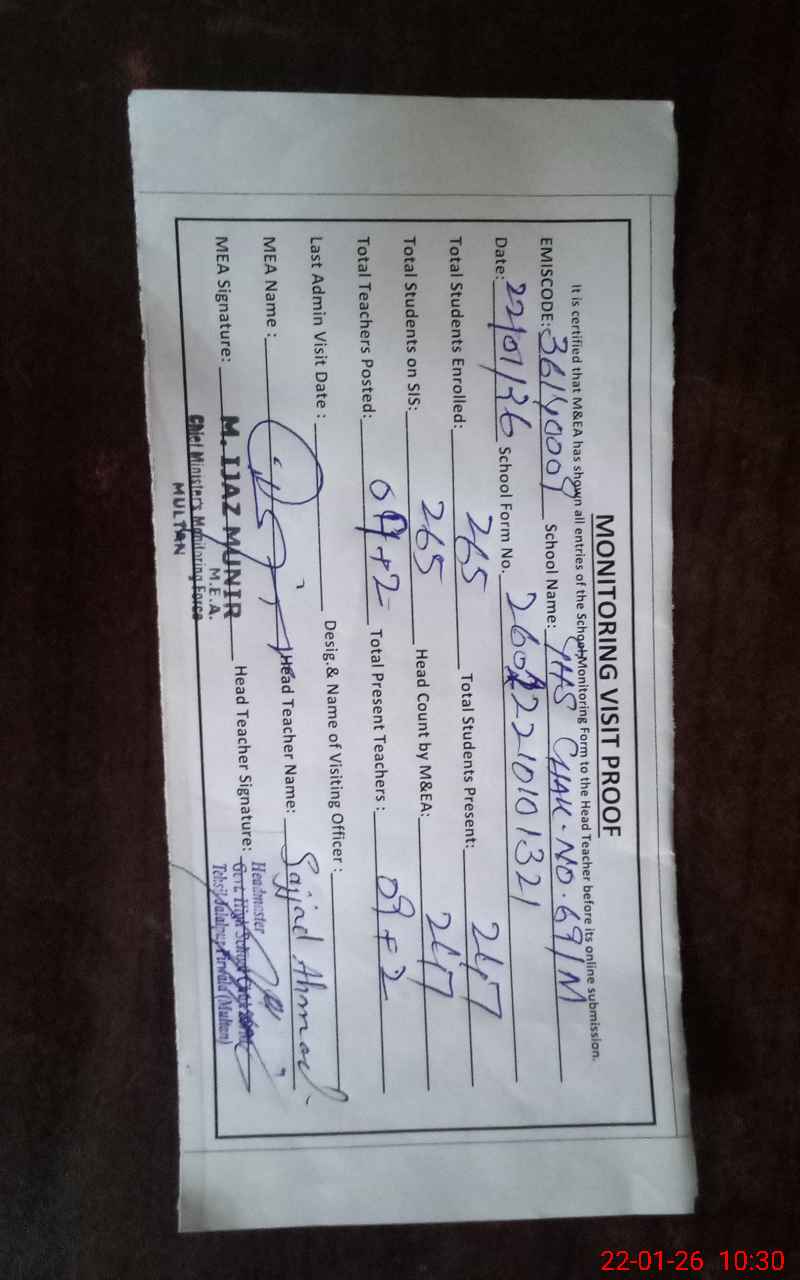 MONITORING VISIT PROOF
It is certified that M&EA has shown all entries of the School Monitoring Form to the Head Teacher before its online submission.
EMISCODE: 36140009 School Name: GHS CHAK.NO.69/M
Date: 22/01/26 School Form No. 26012210101321
Total Students Enrolled: 265 Total Students Present: 247
Total Students on SIS: 265 Head Count by M&EA: 247
Total Teachers Posted: 09+2 Total Present Teachers : 09+2
Last Admin Visit Date : Desig.& Name of Visiting Officer :
MEA Name : Head Teacher Name: Sajjad Ahmad
MEA Signature: M. IJAZ MUNIR Head Teacher Signature:
M.E.A.
Chief Minister's Monitoring Force
MULTAN
Headmaster
Govt. High School
Tehsil Jalalpur Pirwala (Multan)
22-01-26 10:30